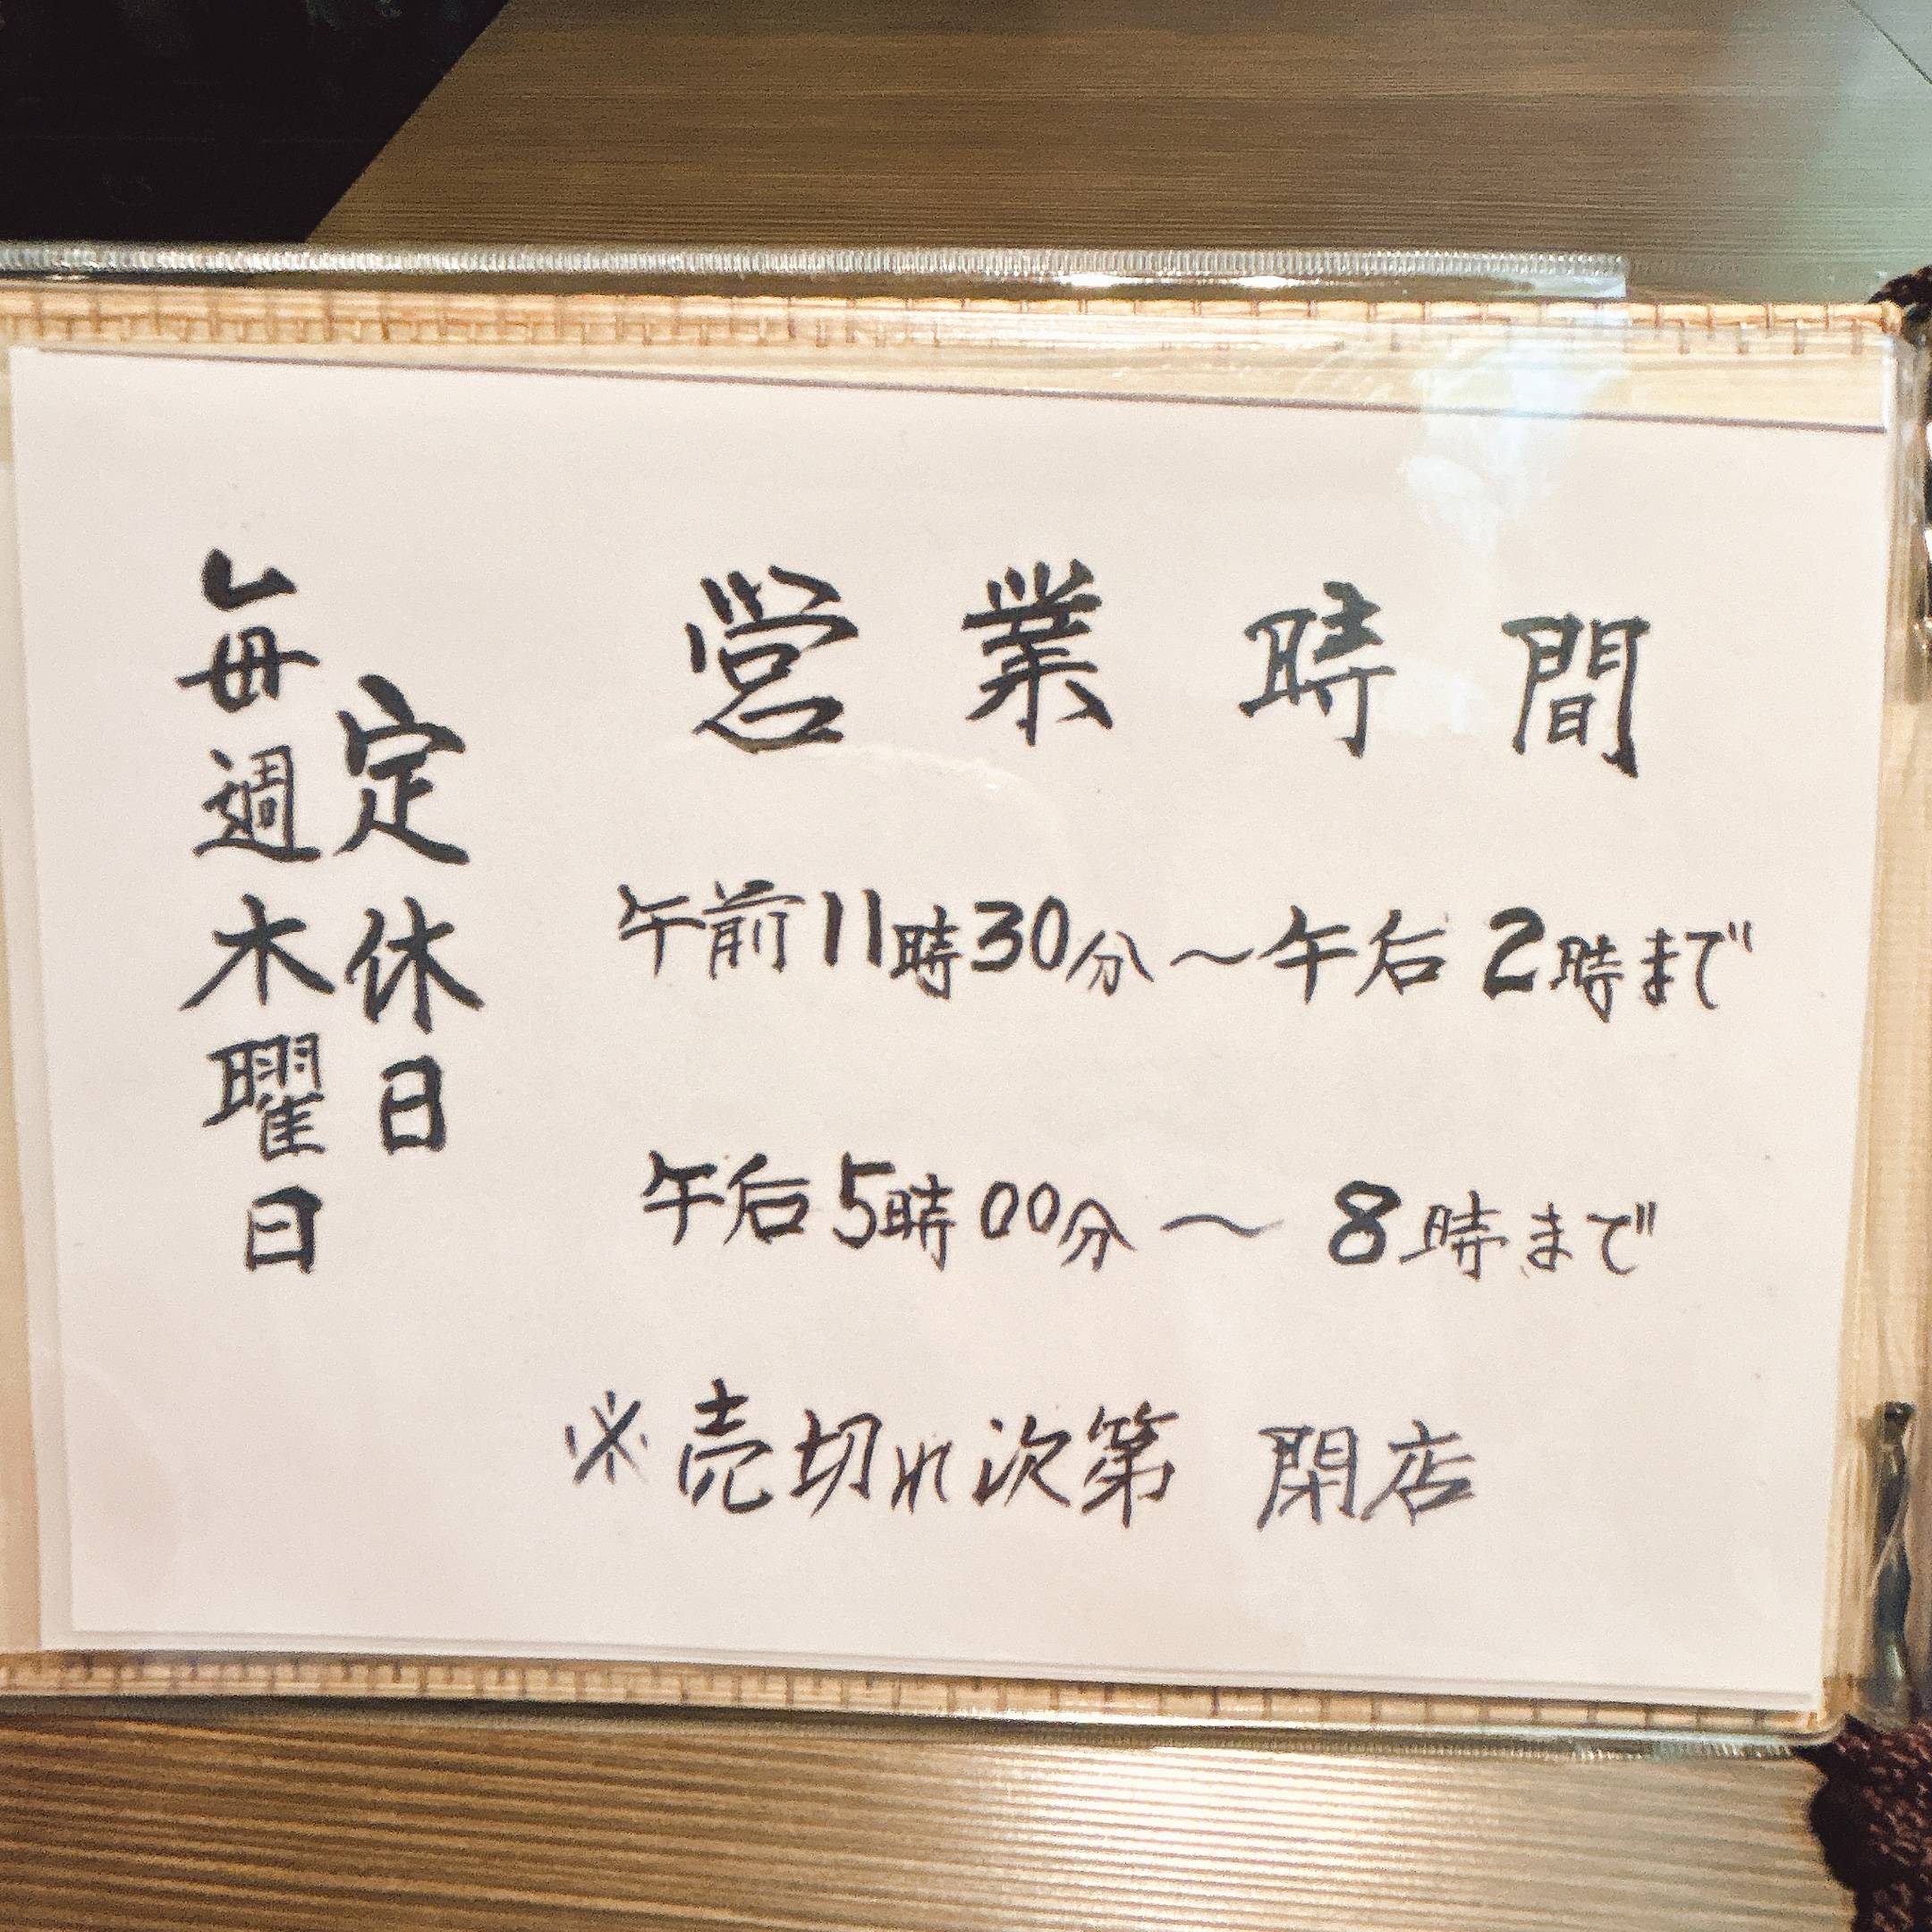 営業時間
午前11時30分〜午后2時まで
午后5時00分〜8時まで
※売切れ次第 閉店
定休日
毎週木曜日